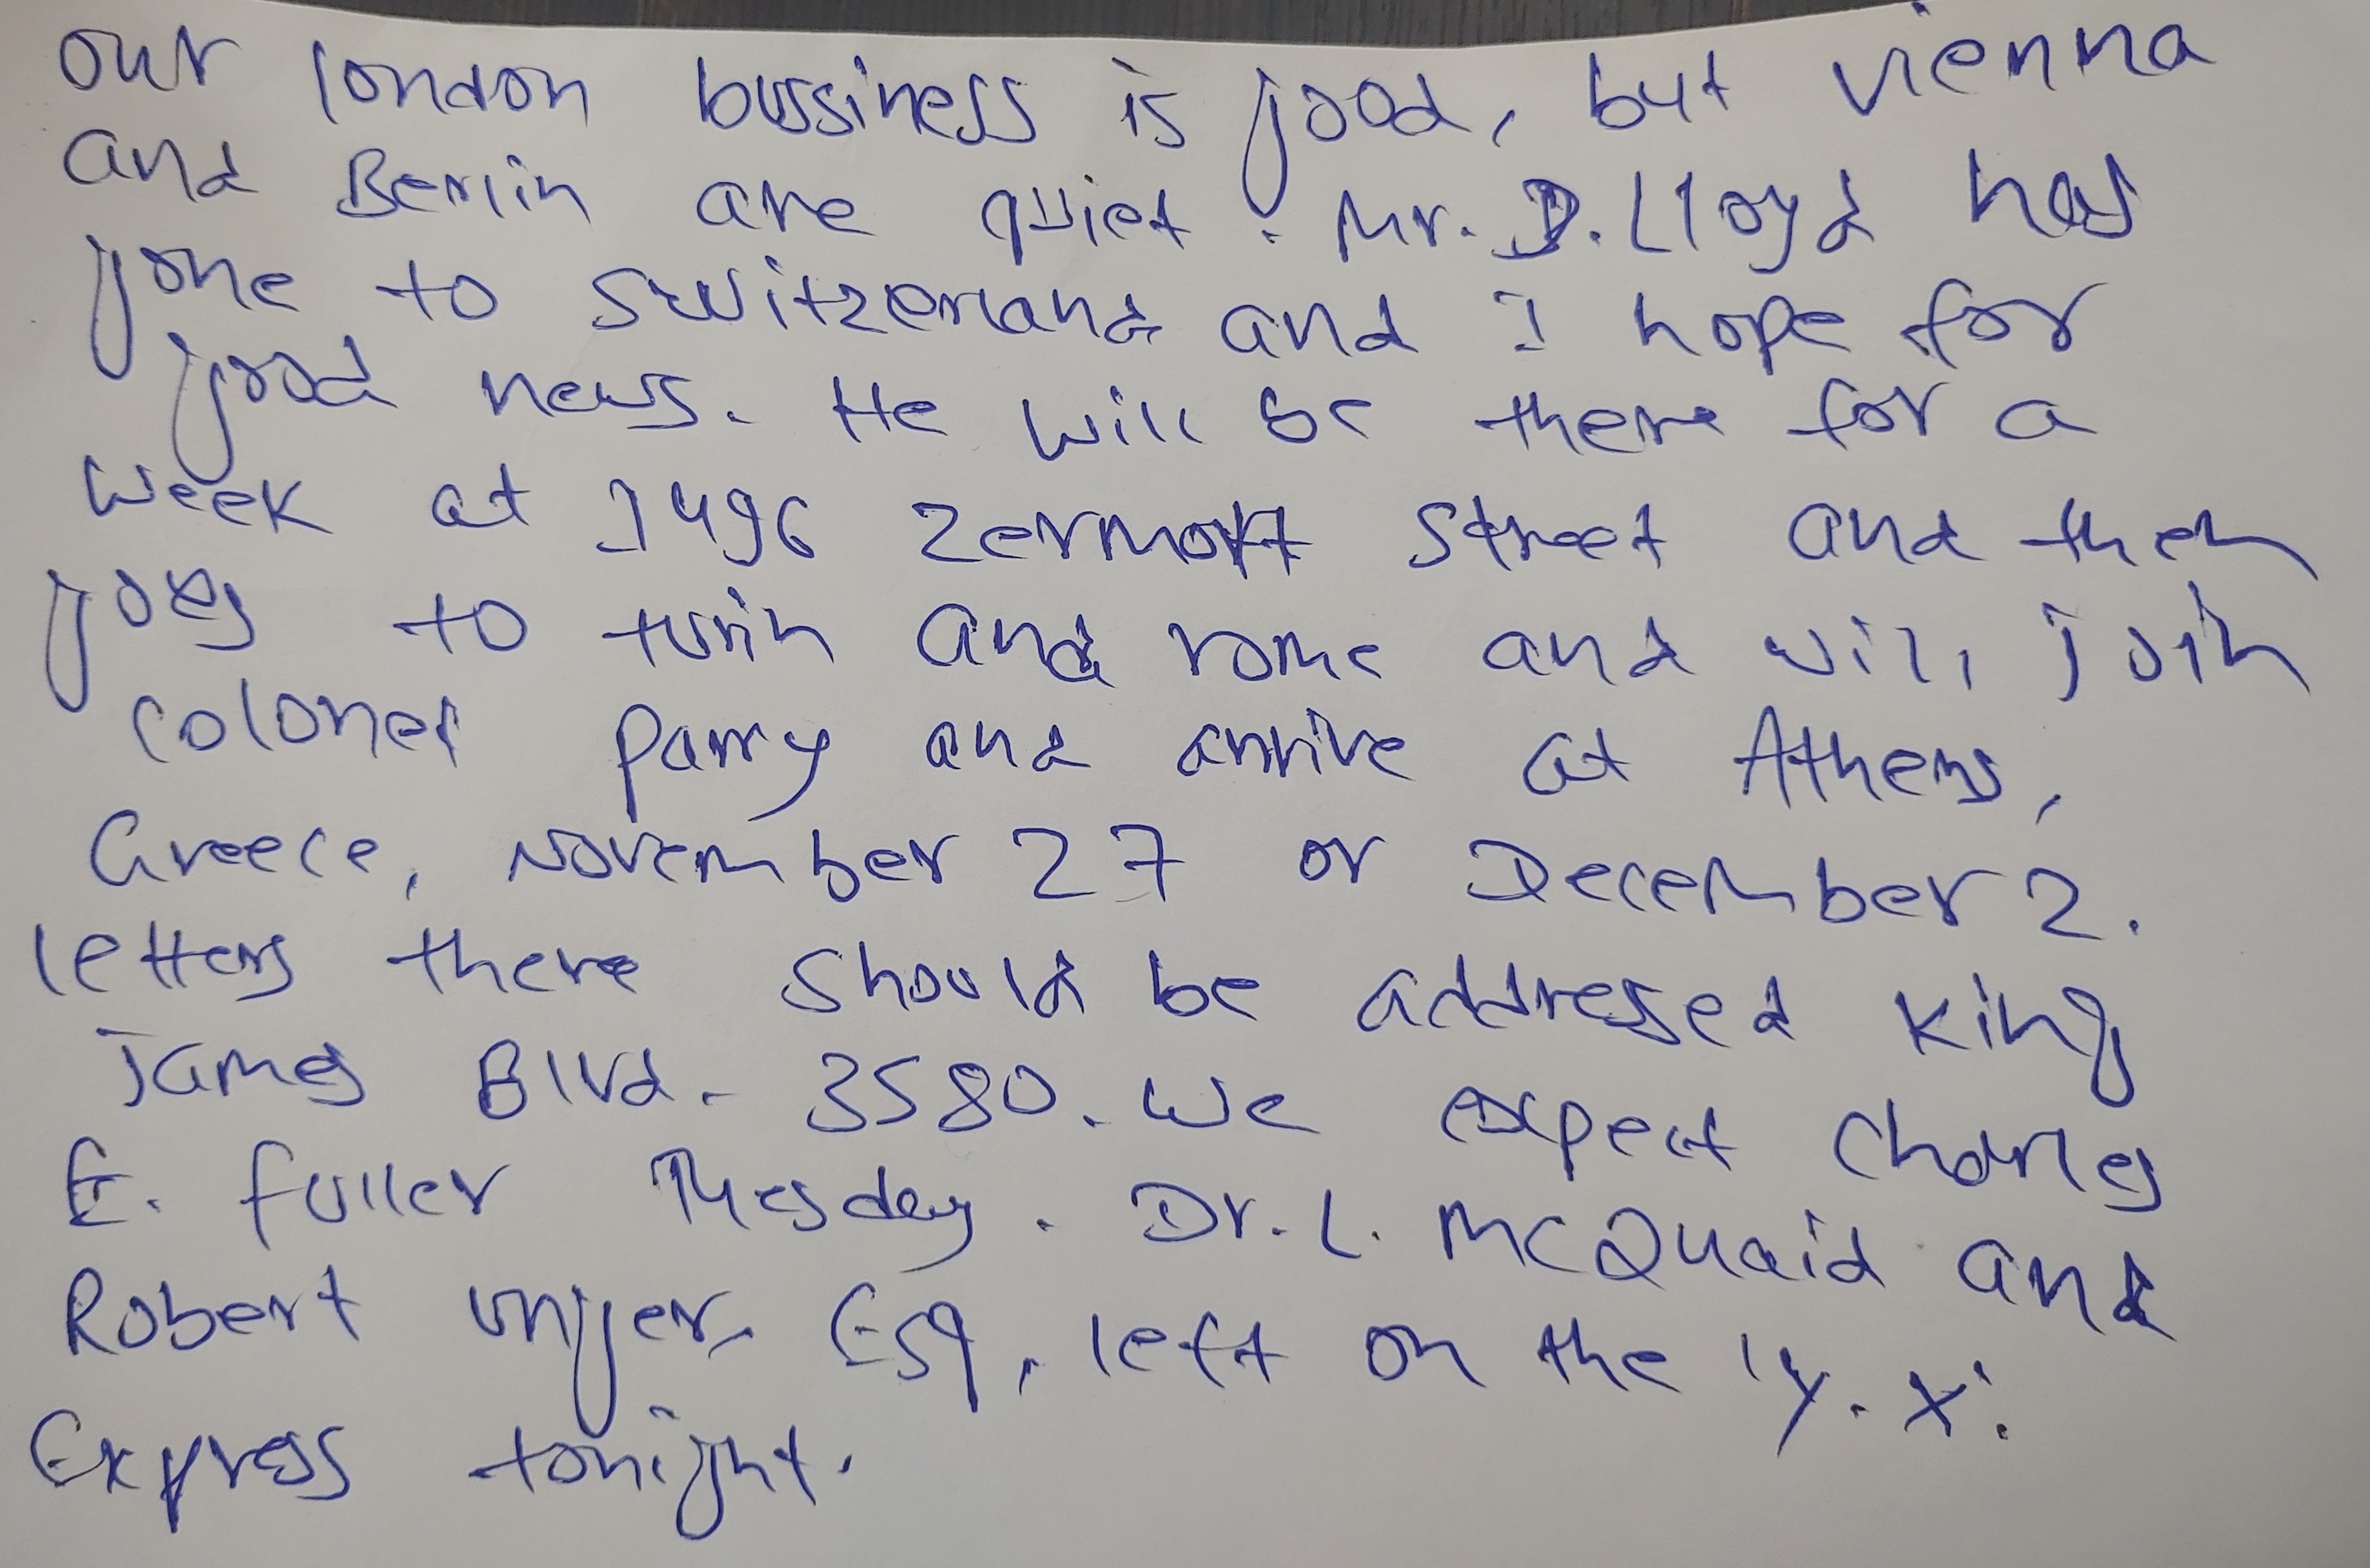 our london bussiness is good, but vienna
and Berlin are quiet. Mr. D. Lloyd has
gone to switzerland and I hope for
good news. He will be there for a
week at 1496 zermott street and then
goes to turin and rome and will join
colonel parry and arrive at Athens,
Greece, November 27 or December 2.
letters there should be addressed King
James Blvd. 3580. We expect Charles
E. fuller Tuesday. Dr. L. McQuaid and
Robert unger, Esq, left on the 'y. X'.
Express tonight.